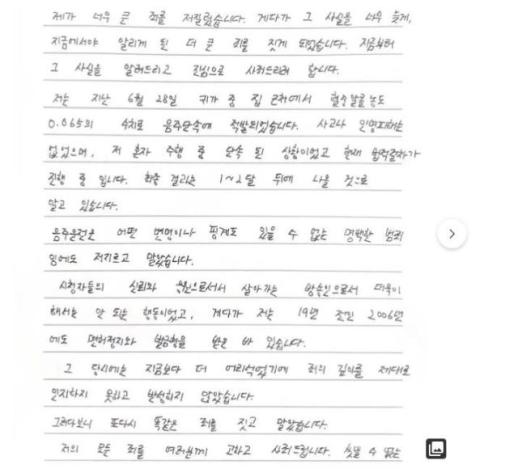 제가 너무 큰 죄를 저질렀습니다. 게다가 그 사실을 너무 늦게,
지금에서야 알리게 된 더 큰 죄를 짓게 되었습니다. 지금부터
그 사실을 알려드리고 진심으로 사죄드리려 합니다.
저는 지난 6월 28일 귀가 중 집 근처에서 혈중알콜농도
0.065의 수치로 음주단속에 적발되었습니다. 사고나 인명피해는
없었으며, 저 혼자 수행 중 단속 된 상황이었고 현재 법적절차가
진행 중 입니다. 최종 결과는 1~2달 뒤에 나올 것으로
알고 있습니다.
음주운전은 어떤 변명이나 핑계도 있을 수 없는 명백한 범죄
임에도 저지르고 말았습니다.
시청자들의 신뢰와 응원으로서 살아가는 방송인으로서 더욱이
해서는 안 되는 행동이었고, 게다가 저는 19년 전인 2006년
에도 면허정지와 벌금형을 받은 바 있습니다.
그 당시에는 지금보다 더 어리석었기에 죄의 깊이를 제대로
인지하지 못하고 반성하지 않았습니다.
그러다보니 또다시 똑같은 죄를 짓고 말았습니다.
저의 모든 죄를 여러분께 고하고 사죄드립니다. 씻을 수 없는